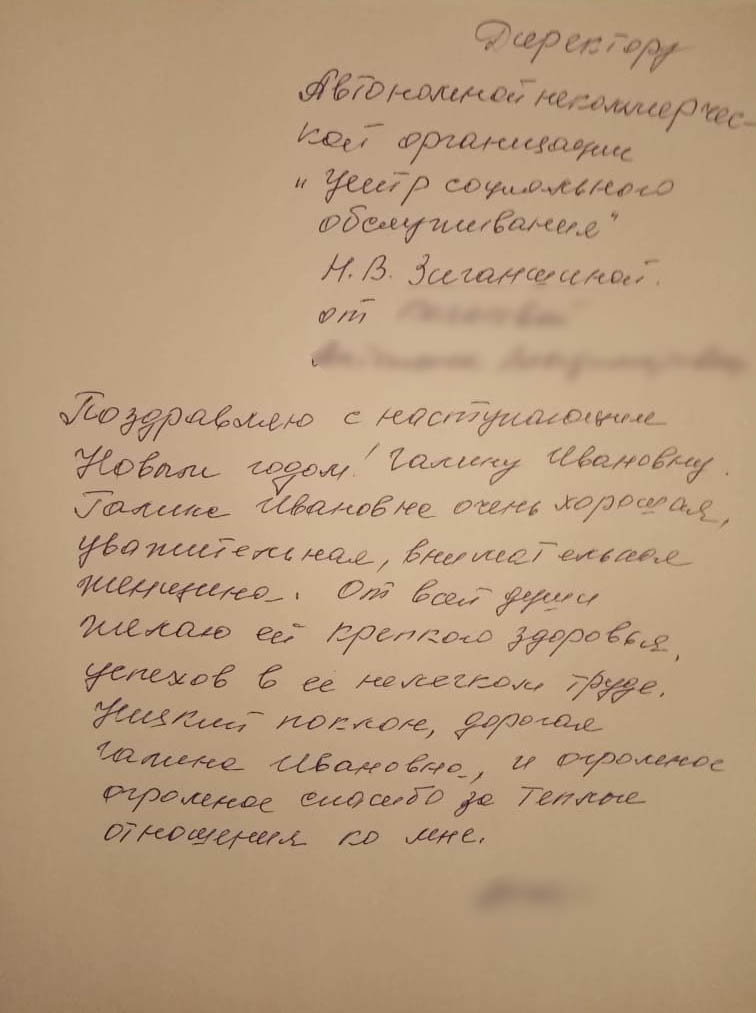 Директору
Автономной некоммерчес-
кой организации
"Центр социального
обслуживания"
Н.В. Зиганшиной.
от
Поздравляю с наступающим
Новым годом! Галину Ивановну.
Галина Ивановна очень хорошая,
уважительная, внимательная
женщина. От всей души
желаю ей крепкого здоровья,
успехов в её нелегком труде.
Низкий поклон, дорогая
Галина Ивановна, и огромное
огромное спасибо за теплые
отношения ко мне.